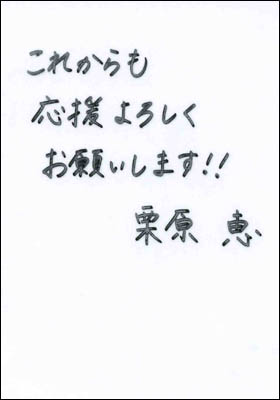 これからも
応援よろしく
お願いします!!
栗原 恵